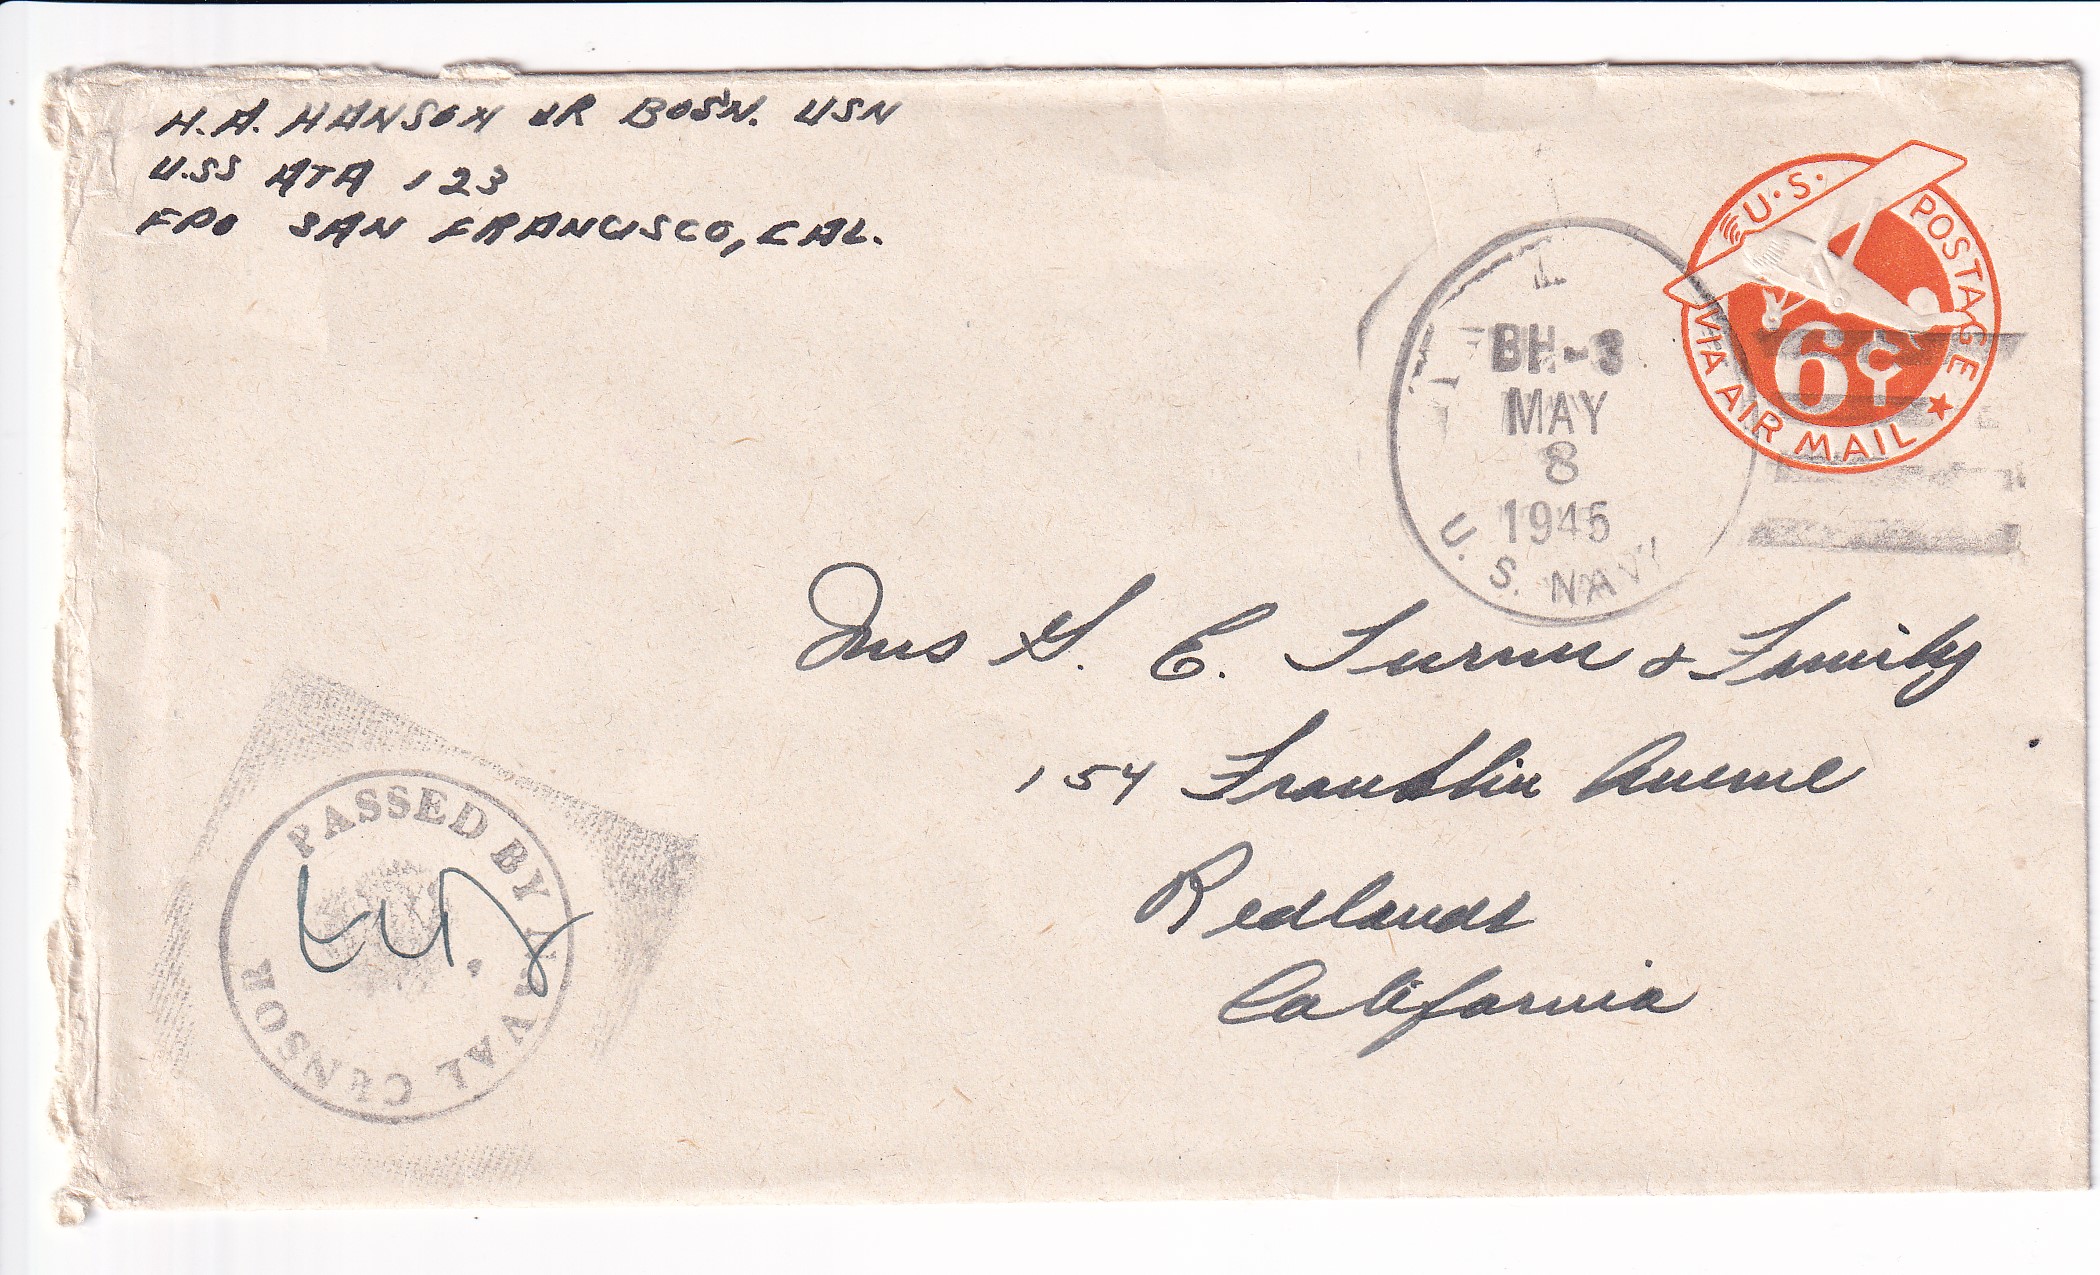 H.A. HANSON JR BOS'N. USN
USS ATA 123
FPO SAN FRANCISCO, CAL.
U.S. POSTAGE
VIA AIR MAIL
6¢
BH-3
MAY
8
1945
U. S. NAVY
Mrs G. E. Turner & Family
154 Franklin Avenue
Redlands
California
PASSED BY NAVAL CENSOR